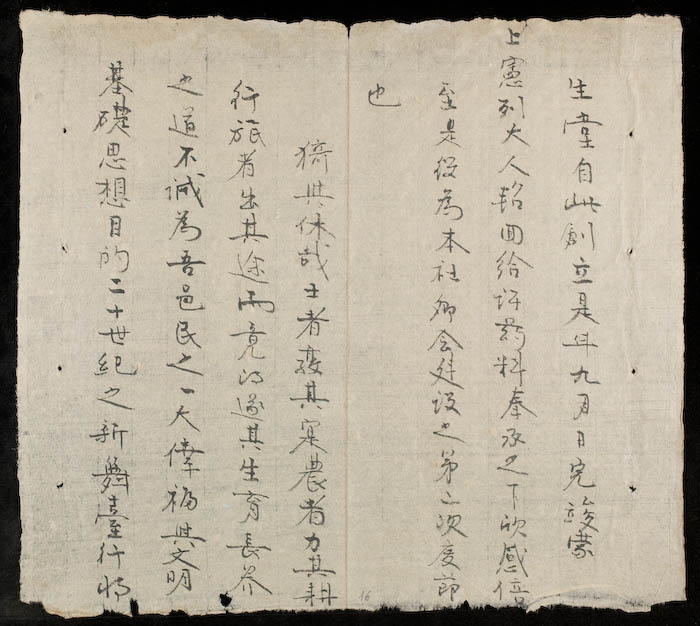 生堂自此創立是年九月日完竣蒙
上憲列大人軫回給許葯料奉承之下欣感倍
至是役為本社鄉会建設之第二次度節
也
猗其休哉士者獲其業農者力其耕
行旅者出其途而竟得遂其生育長养
之道不誠為吾邑民之一大倖福其文明
基礎思想目的二十世紀之新舞臺行將
16